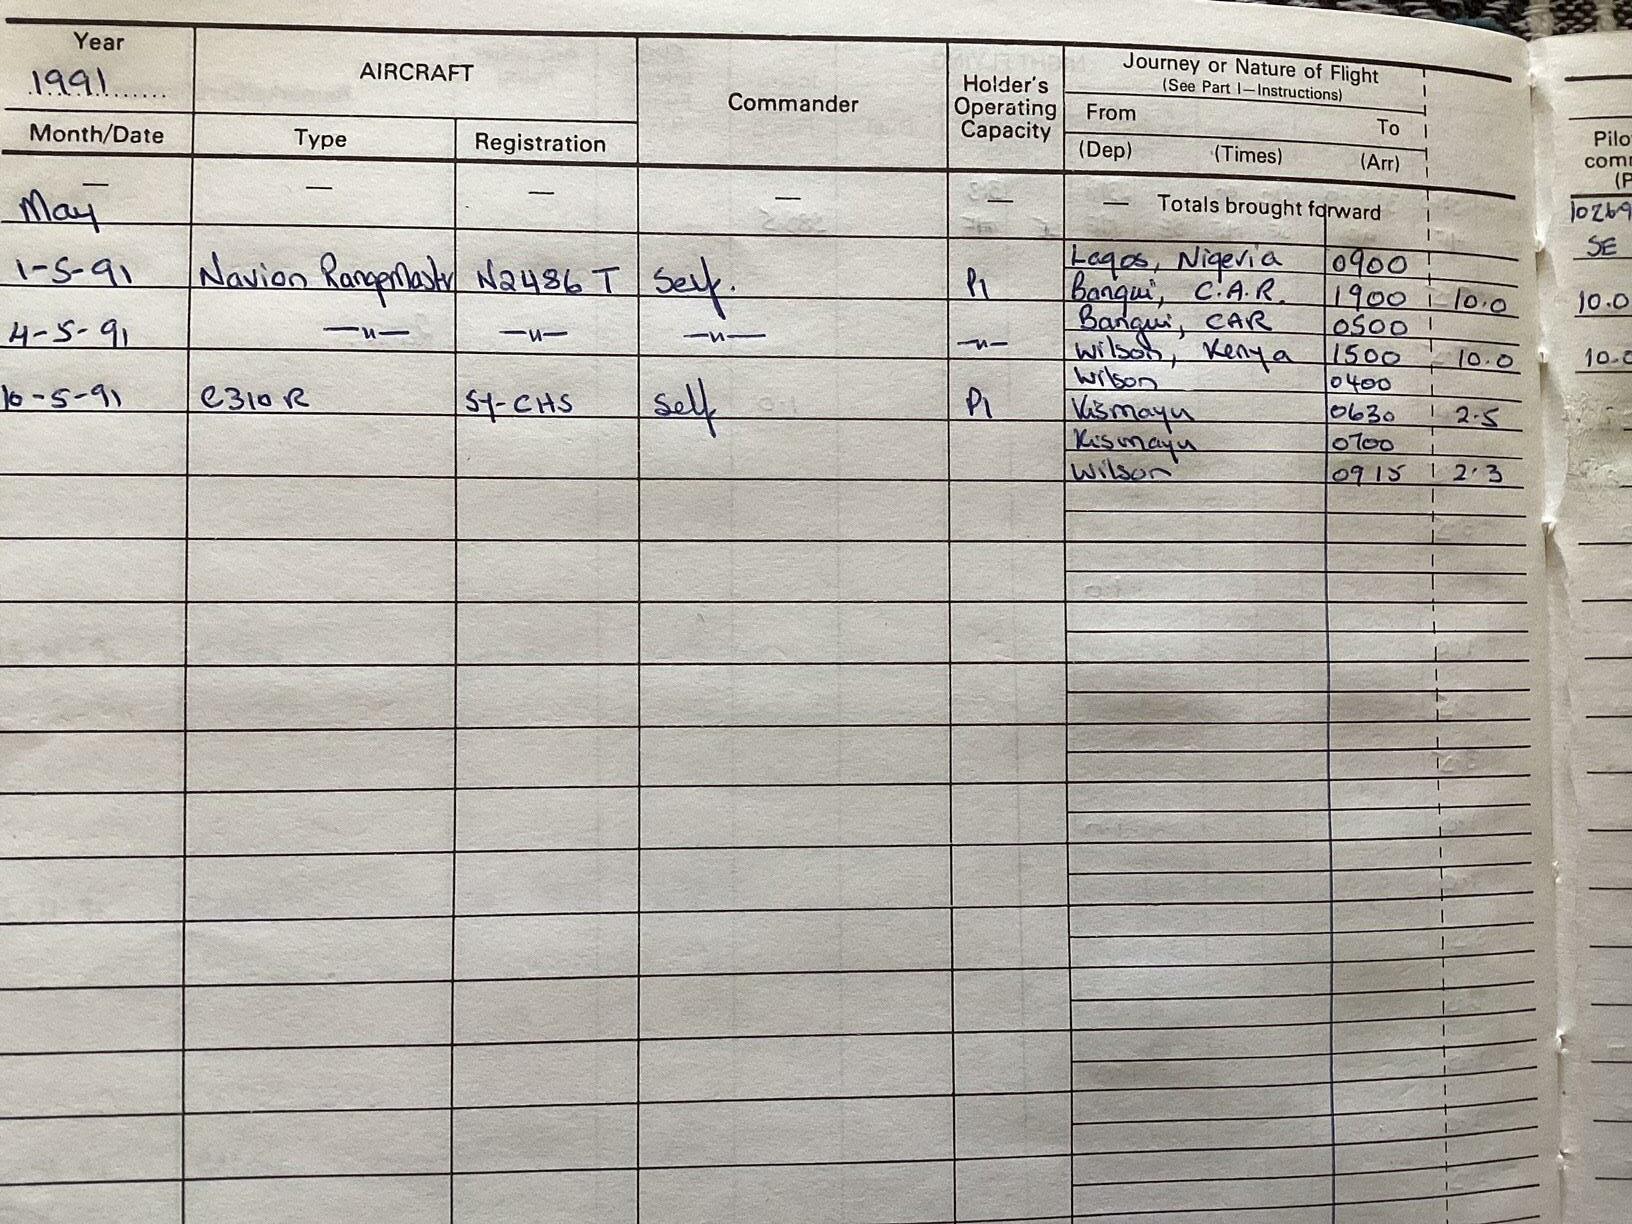 Year
1991......
AIRCRAFT
Commander
Holder's
Operating
Capacity
Journey or Nature of Flight
(See Part I—Instructions)
From To
(Dep) (Times) (Arr)
Month/Date Type Registration
May — — — — — — Totals brought forward 10269
SE
1-5-91 Navion RangeMastr N2486T Self. P1 Lagos, Nigeria 0900
Bangui, C.A.R. 1900 10.0 10.0
4-5-91 —"— —"— —"— —"— Bangui, CAR 0500
Wilson, Kenya 1500 10.0 10.0
10-5-91 C310R 5Y-CHS Self P1 Wilson 0400
Kismayu 0630 2.5
Kismayu 0700
Wilson 0915 2.3